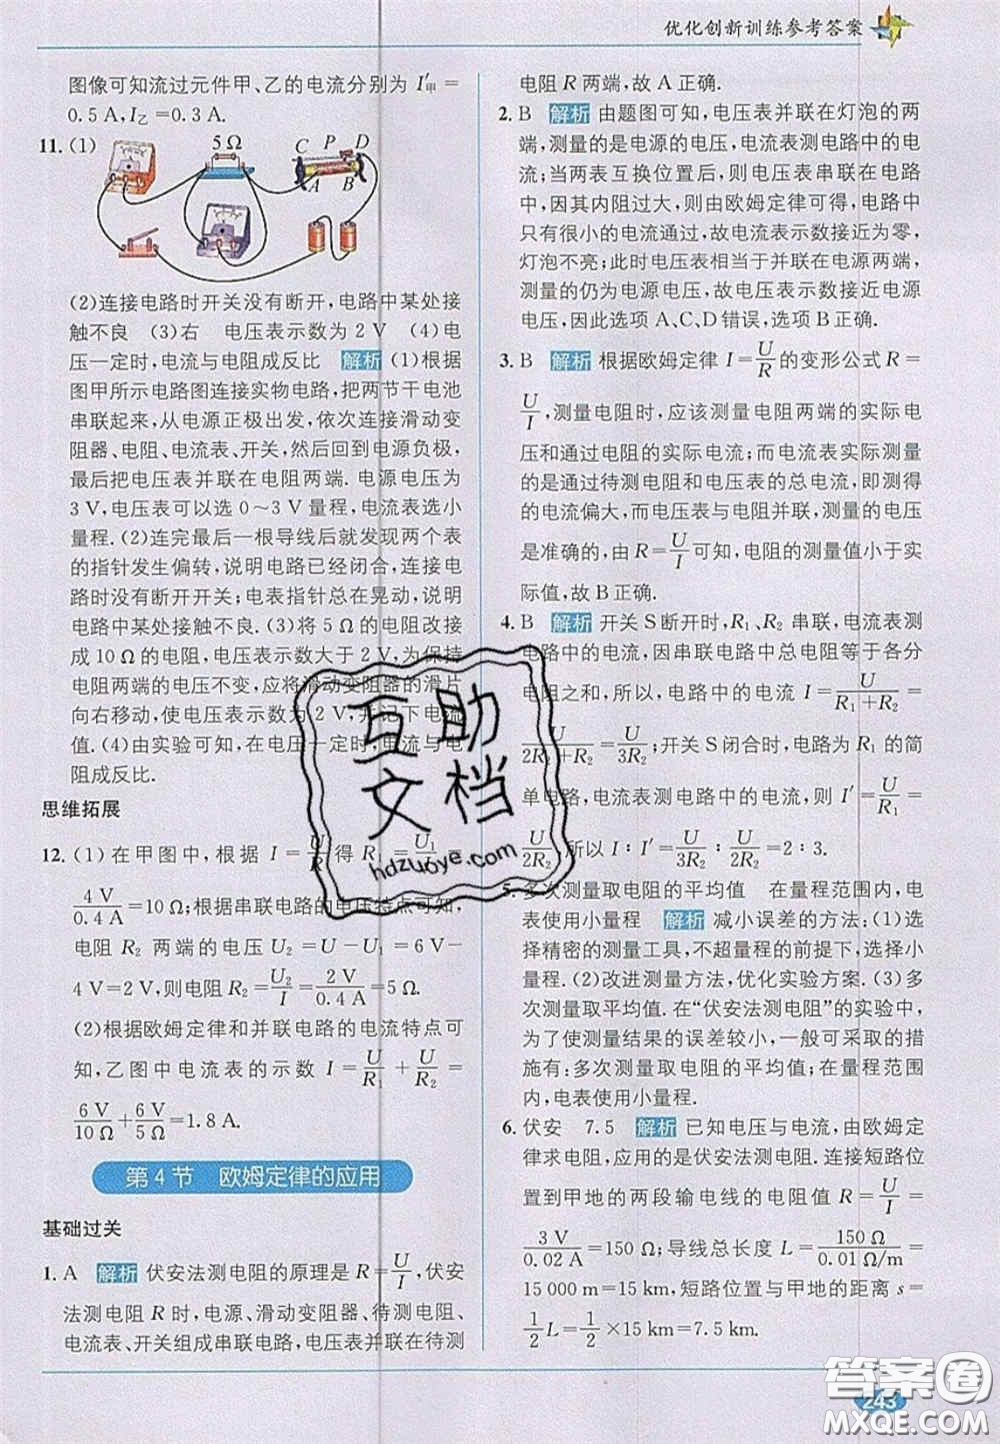 优化创新训练参考答案
图像可知流过元件甲、乙的电流分别为 I′甲 =
0.5 A,I乙=0.3 A.
11. (1)
5 Ω
C P D
A B
(2)连接电路时开关没有断开,电路中某处接
触不良 (3)右 电压表示数为 2 V (4)电
压一定时,电流与电阻成反比 解析 (1)根据
图甲所示电路图连接实物电路,把两节干电池
串联起来,从电源正极出发,依次连接滑动变
阻器、电阻、电流表、开关,然后回到电源负极,
最后把电压表并联在电阻两端. 电源电压为
3 V,电压表可以选 0～3 V 量程,电流表选小
量程.(2)连完最后一根导线后就发现两个表
的指针发生偏转,说明电路已经闭合,连接电
路时没有断开开关;电表指针总在晃动,说明
电路中某处接触不良.(3)将 5 Ω 的电阻改接
成 10 Ω 的电阻,电压表示数大于 2 V,为保持
电阻两端的电压不变,应将滑动变阻器的滑片
向右移动,使电压表示数为 2 V,并记下电流
值.(4)由实验可知,在电压一定时,电流与电
阻成反比.
思维拓展
12. (1) 在甲图中,根据 I = U/R 得 R₁ = U₁/I =
4 V/0.4 A=10 Ω;根据串联电路的电压特点可知,
电阻 R₂ 两端的电压 U₂ = U − U₁ = 6 V −
4 V=2 V,则电阻 R₂=U₂/I=2 V/0.4 A=5 Ω.
(2)根据欧姆定律和并联电路的电流特点可
知,乙图中电流表的示数 I = U/R₁ + U/R₂ =
6 V/10 Ω+6 V/5 Ω=1.8 A.
第 4 节 欧姆定律的应用
基础过关
1. A 解析 伏安法测电阻的原理是 R=U/I,伏安
法测电阻 R 时,电源、滑动变阻器、待测电阻、
电流表、开关组成串联电路,电压表并联在待测
电阻 R 两端,故 A 正确.
2. B 解析 由题图可知,电压表并联在灯泡的两
端,测量的是电源的电压,电流表测电路中的电
流;当两表互换位置后,则电压表串联在电路
中,因其内阻过大,则由欧姆定律可得,电路中
只有很小的电流通过,故电流表示数接近为零,
灯泡不亮;此时电压表相当于并联在电源两端,
测量的仍为电源电压,故电压表示数接近电源
电压,因此选项 A、C、D 错误,选项 B 正确.
3. B 解析 根据欧姆定律 I=U/R的变形公式 R=
U/I,测量电阻时,应该测量电阻两端的实际电
压和通过电阻的实际电流;而电流表实际测量
的是通过待测电阻和电压表的总电流,即测得
的电流偏大,而电压表与电阻并联,测量的电压
是准确的,由 R=U/I可知,电阻的测量值小于实
际值,故 B 正确.
4. B 解析 开关 S 断开时,R₁、R₂ 串联,电流表测
电路中的电流,因串联电路中总电阻等于各分
电阻之和,所以,电路中的电流 I = U/(R₁+R₂) =
U/(2R₂+R₂)=U/3R₂;开关 S 闭合时,电路为 R₁ 的简
单电路,电流表测电路中的电流,则 I′=U/R₁=
U/2R₂,所以 I∶I′=U/3R₂∶U/2R₂=2∶3.
5. 多次测量取电阻的平均值 在量程范围内,电
表使用小量程 解析 减小误差的方法:(1)选
择精密的测量工具,不超量程的前提下,选择小
量程.(2)改进测量方法,优化实验方案.(3)多
次测量取平均值.在“伏安法测电阻”的实验中,
为了使测量结果的误差较小,一般可采取的措
施有:多次测量取电阻的平均值;在量程范围
内,电表使用小量程.
6. 伏安 7.5 解析 已知电压与电流,由欧姆定
律求电阻,应用的是伏安法测电阻.连接短路位
置到甲地的两段输电线的电阻值 R=U/I=
3 V/0.02 A=150 Ω;导线总长度 L=150 Ω/0.01 Ω/m=
15 000 m=15 km,短路位置与甲地的距离 s=
1/2 L=1/2×15 km=7.5 km.
互助
文档
hdzuoye.com
答案圈
MXQE.COM
243